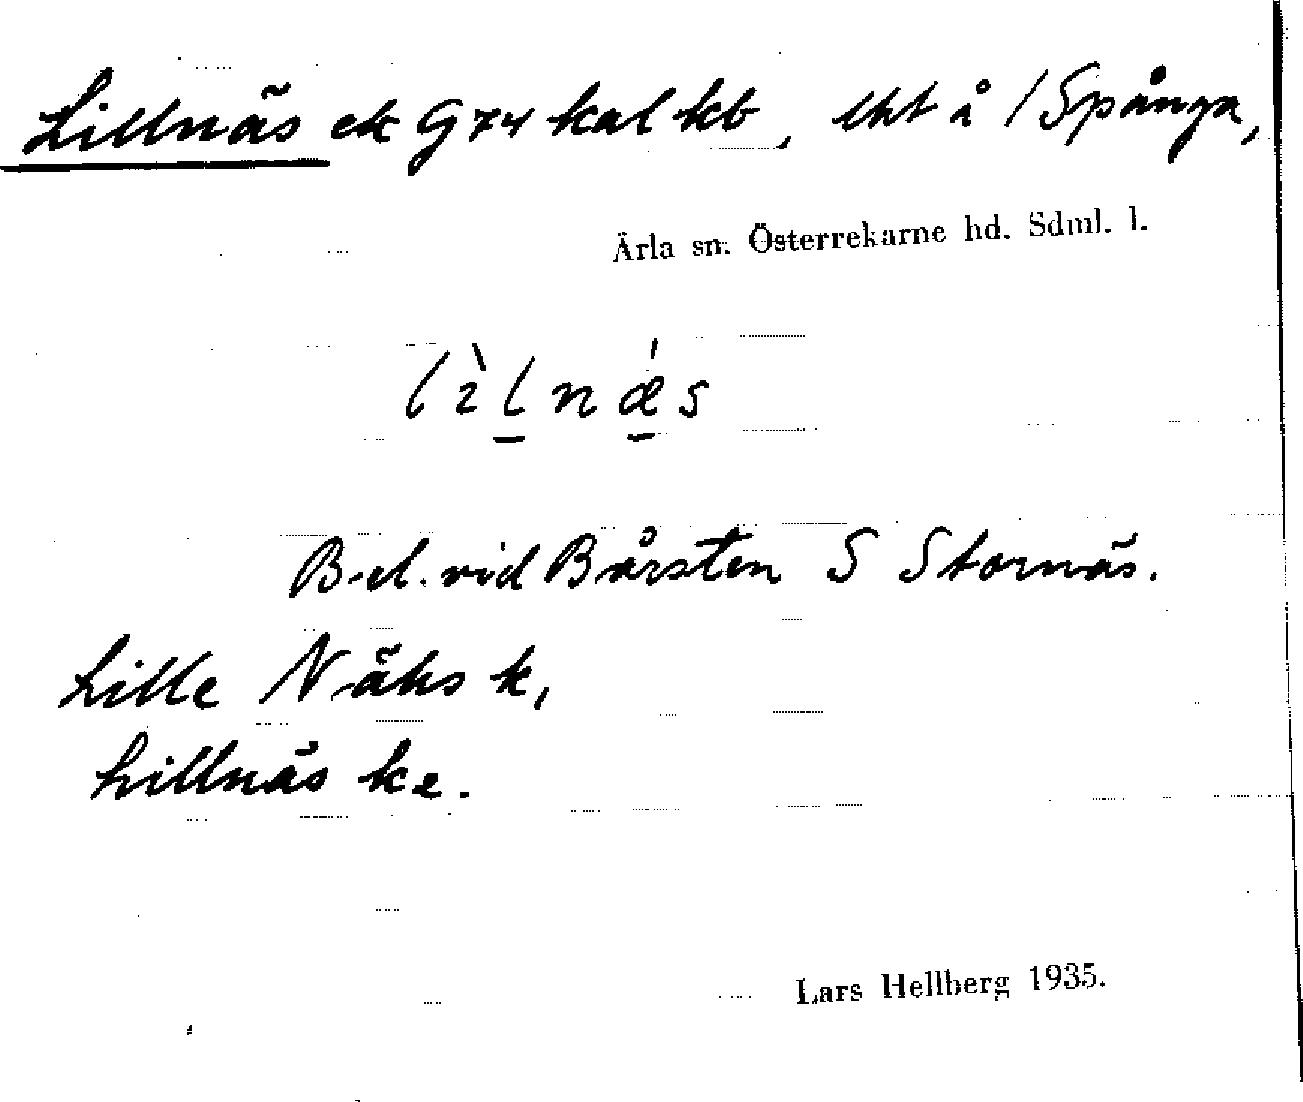 Lillnäs ek G74 kal kb, lht å 1 Spånga,
Ärla sn. Österrekarne hd. Sdml. l.
lìlnǽs
Bel. vid Bårsten S Stornäs.
Lille Nähs k,
Lillnäs ke.
Lars Hellberg 1935.